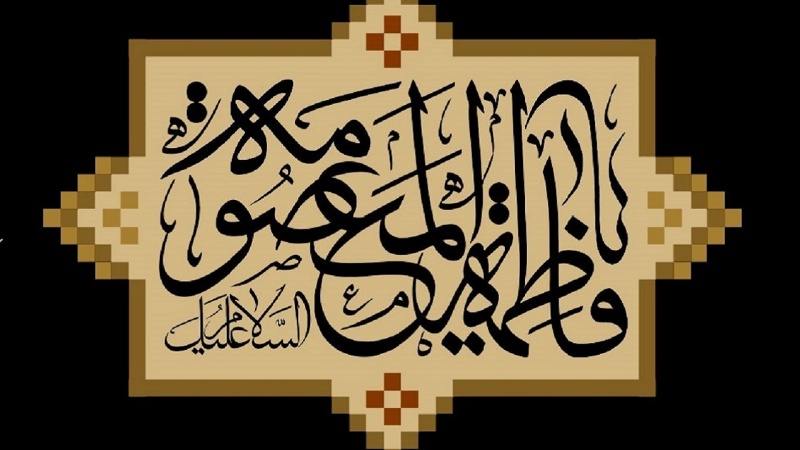 یا فاطمة المعصومة
السَّلامُ عَلَیک